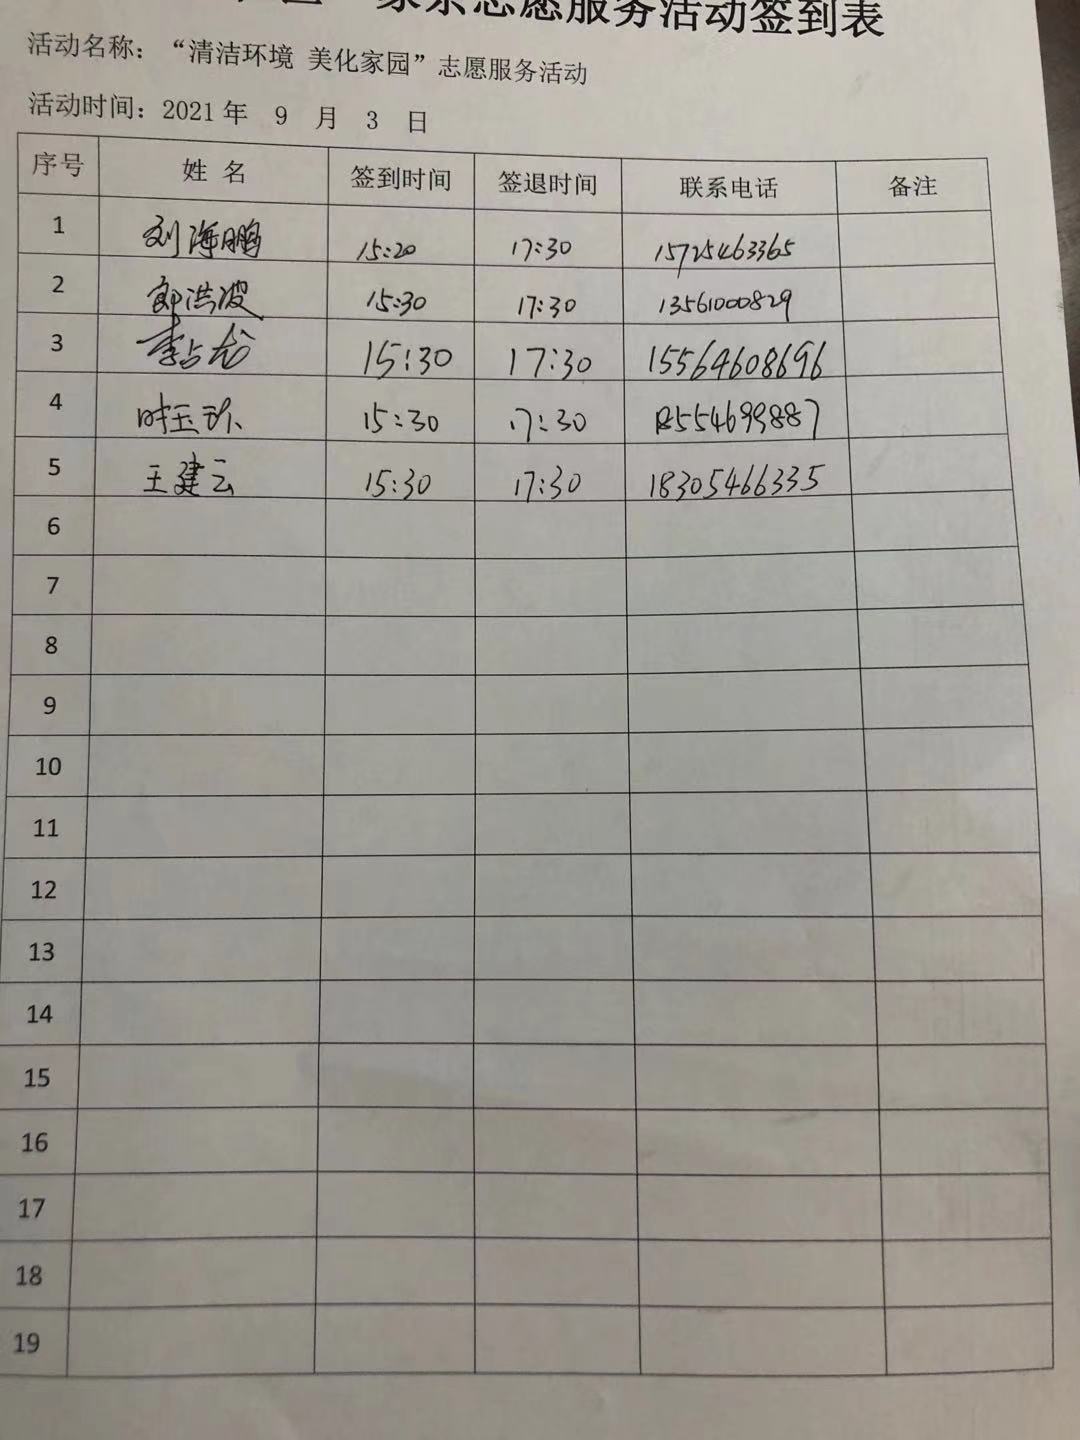 家亲志愿服务活动签到表
活动名称：“清洁环境 美化家园”志愿服务活动
活动时间：2021年 9 月 3 日
序号 姓名 签到时间 签退时间 联系电话 备注
1 刘海鹏 15:20 17:30 15725463365
2 郭洪波 15:30 17:30 13561000829
3 李占龙 15:30 17:30 15564608696
4 时玉珍 15:30 17:30 18554699887
5 王建云 15:30 17:30 18305466335
6
7
8
9
10
11
12
13
14
15
16
17
18
19